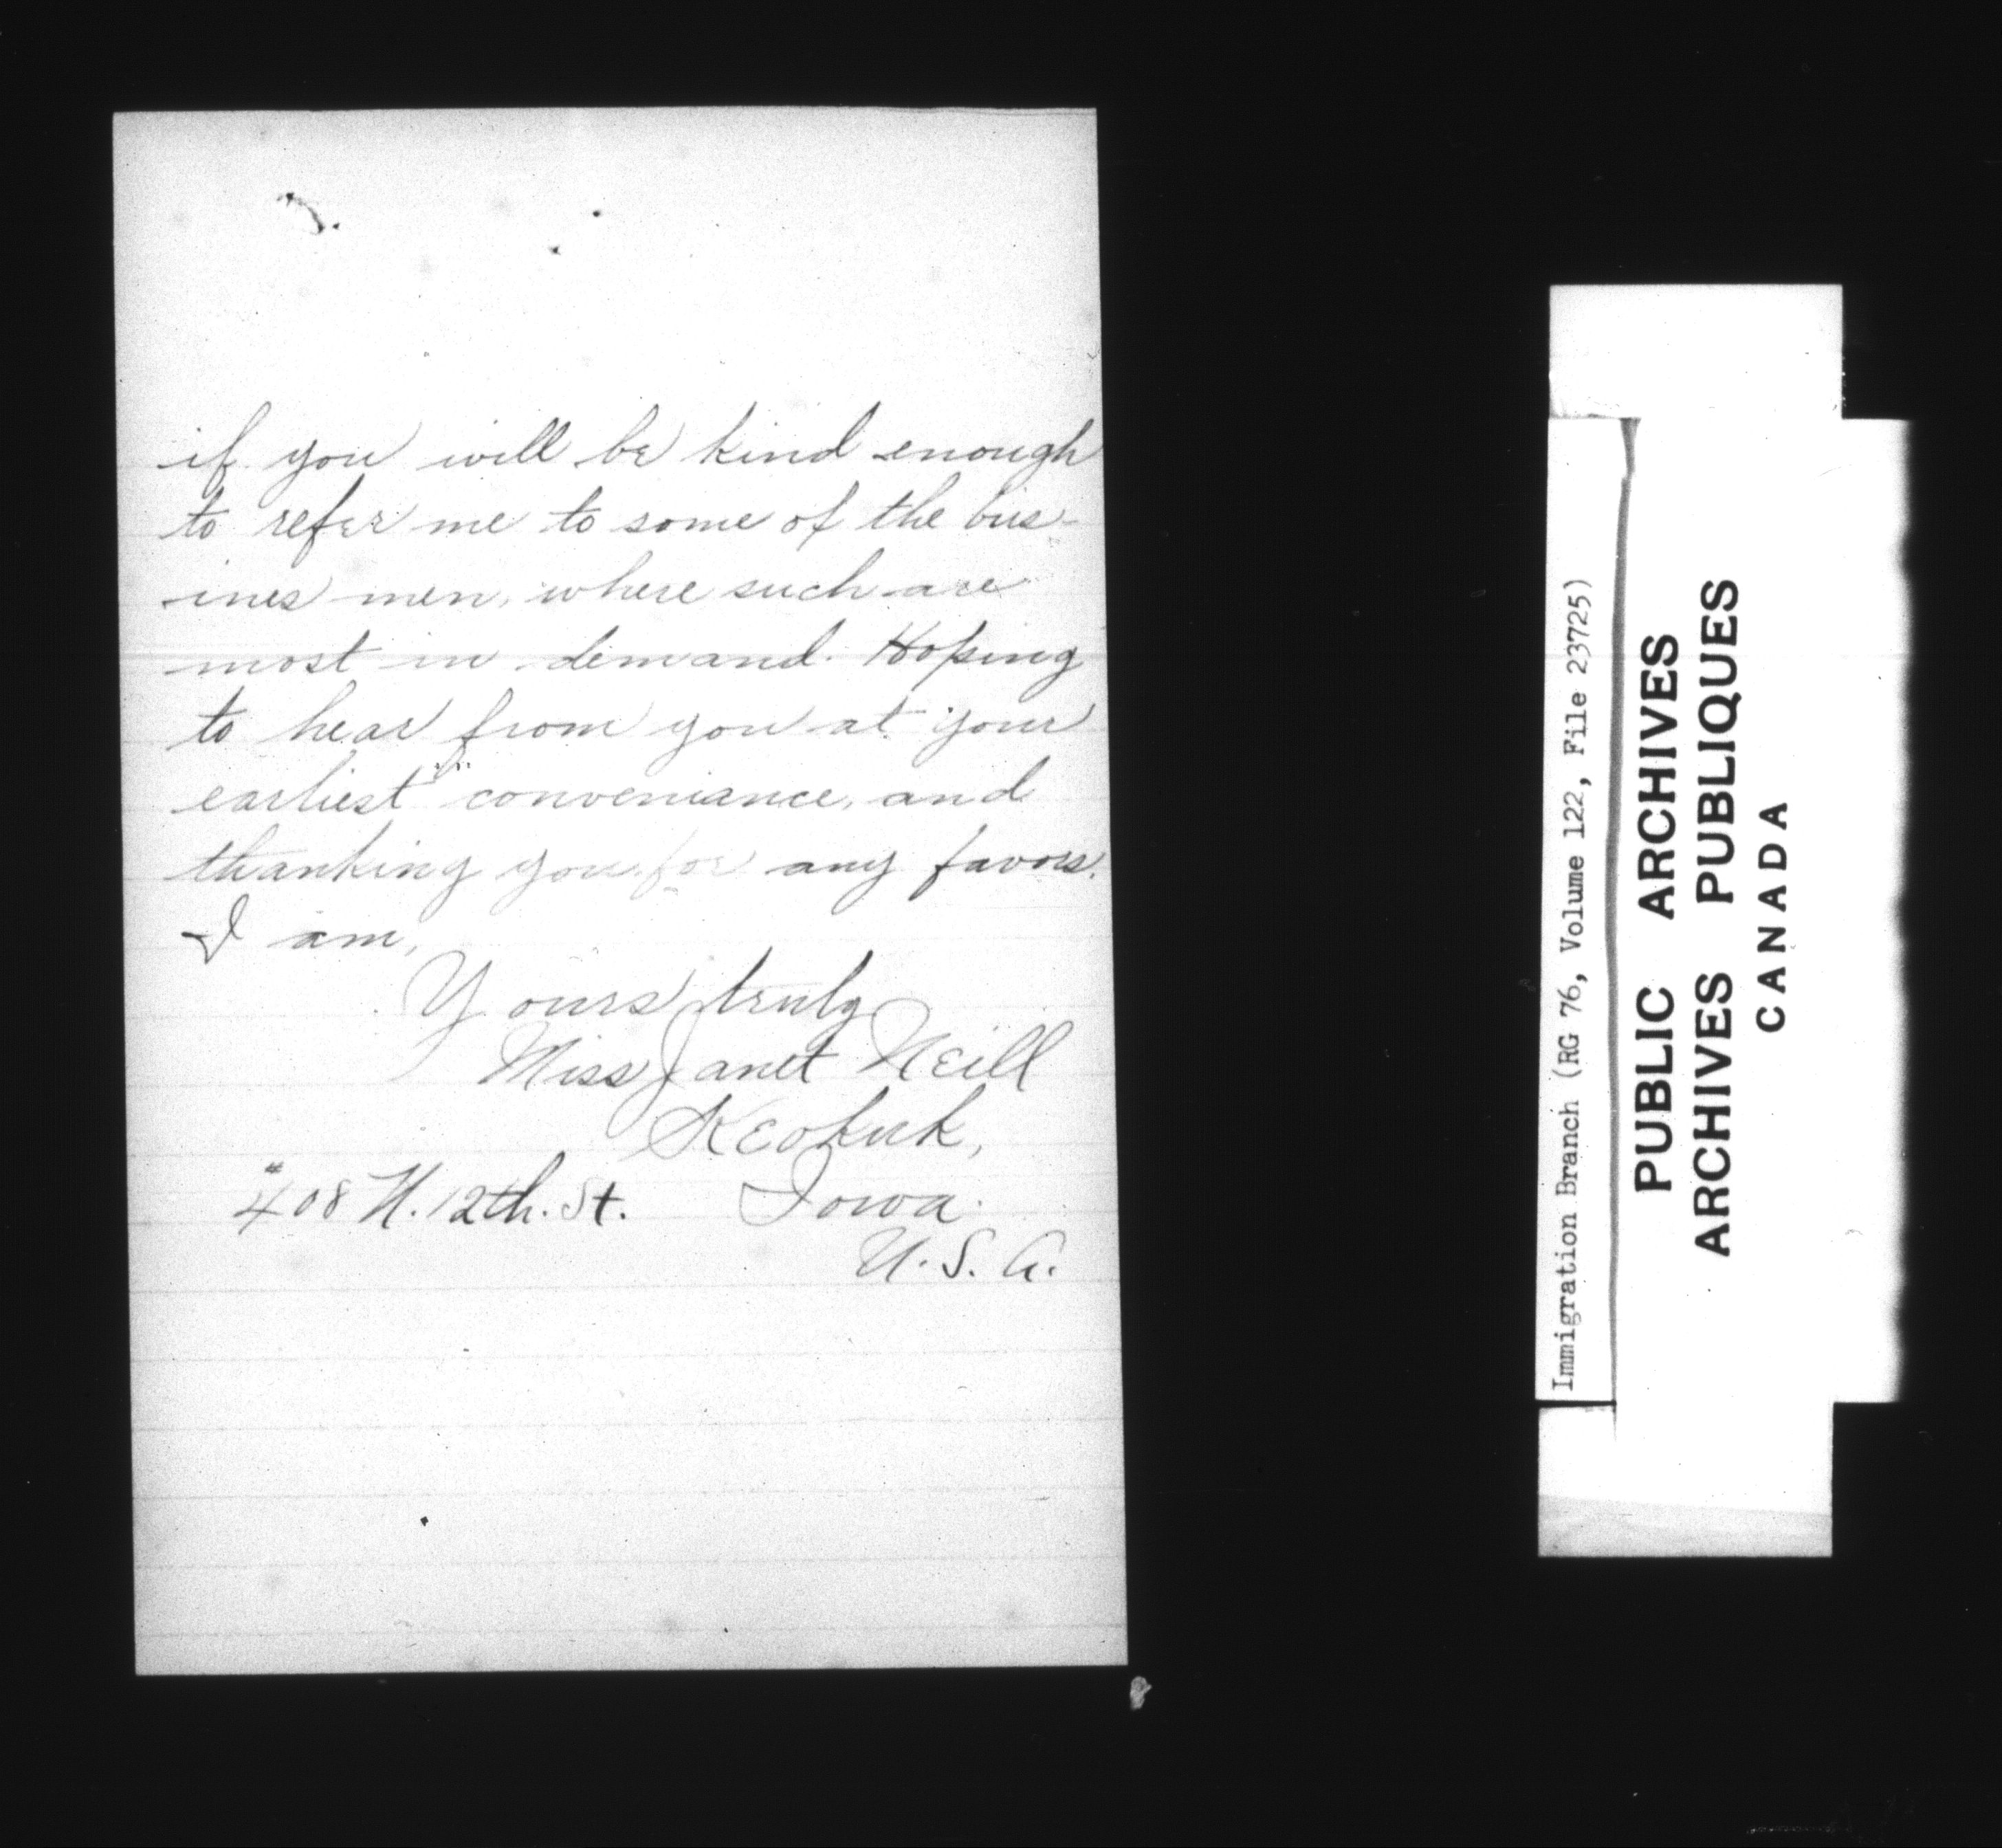 if you will be kind enough
to refer me to some of the bus-
ines men, where such are
most in demand. Hoping
to hear from you at your
earliest conveniance, and
thanking you for any favors.
I am,
Yours truly
Miss Janet Neill
Keokuk,
#408 N. 12th. St. Iowa.
U. S. A.
Immigration Branch (RG 76, Volume 122, File 23725)
PUBLIC ARCHIVES
ARCHIVES PUBLIQUES
CANADA